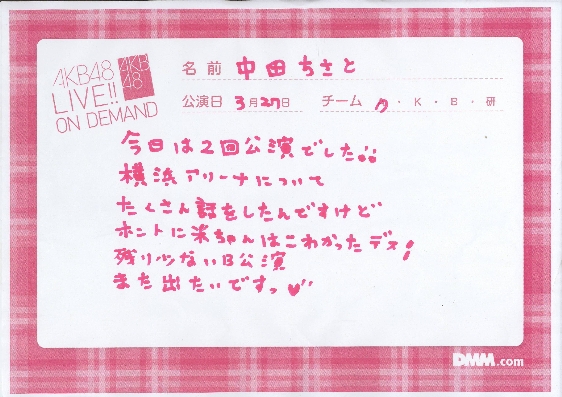 AKB48
LIVE!!
ON DEMAND
AKB
48
名前 中田ちさと
公演日 3月27日 チーム A・K・B・研
今日は2回公演でした
横浜アリーナについて
たくさん話をしたんですけど
ホントに米ちゃんはこわかったデス!
残り少ないB公演
また出たいですっ♥
DMM.com